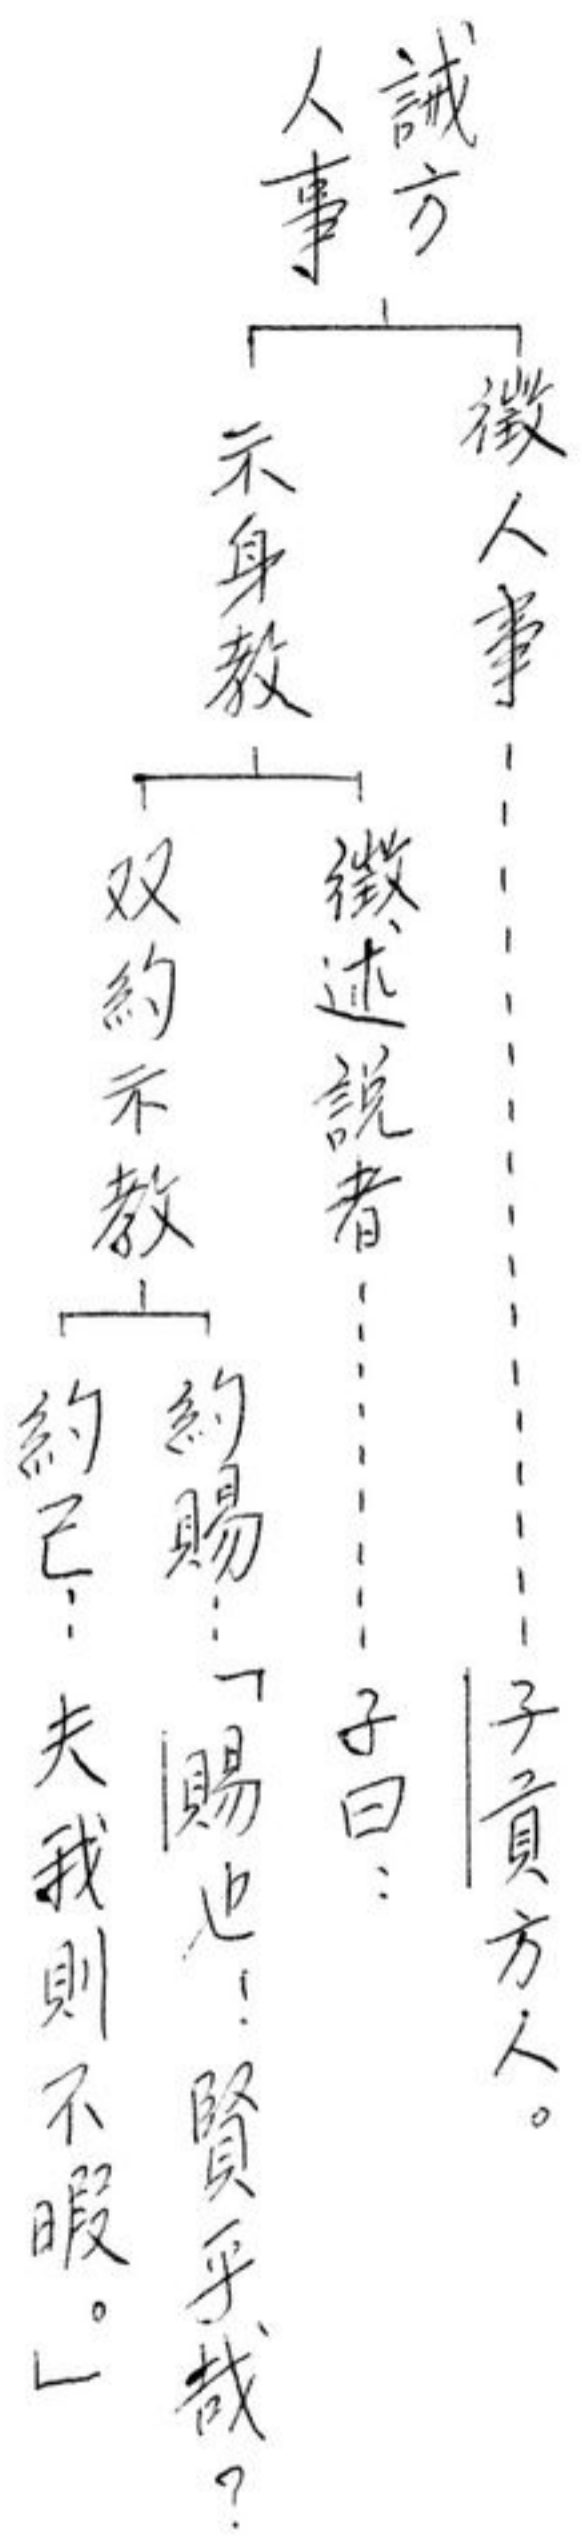 誡方
人事
徵人事
子貢方人。
示身教
徵述說者
子曰：
双約示教
約賜：「賜也！賢乎哉？
約己：夫我則不暇。」